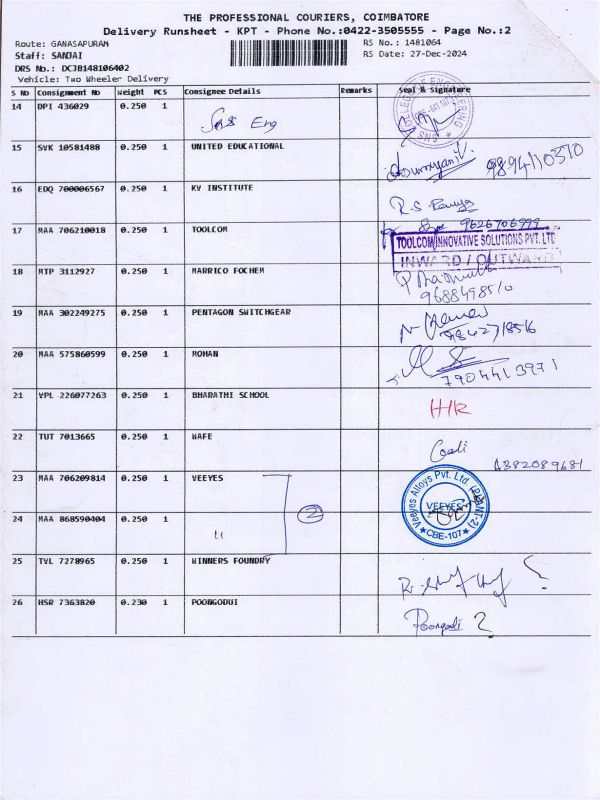 THE PROFESSIONAL COURIERS, COIMBATORE
Delivery Runsheet - KPT - Phone No.:0422-3505555 - Page No.:2
Route: GANASAPURAM RS No.: 1481064
Staff: SANJAI RS Date: 27-Dec-2024
DRS No.: DCJB148106402
Vehicle: Two Wheeler Delivery
S No Consignment No Weight PCS Consignee Details Remarks Seal & Signature
14 DPI 436029 0.250 1
Eng
15 SVK 10581488 0.250 1 UNITED EDUCATIONAL
9894110370
16 EDQ 700006567 0.250 1 KV INSTITUTE
R.S. Ramya
9626706999
17 MAA 706210018 0.250 1 TOOLCOM
TOOLCOM INNOVATIVE SOLUTIONS PVT. LTD
INWARD / OUTWARD
18 MTP 3112927 0.250 1 MARRICO FOCHEM
9688498510
19 MAA 302249275 0.250 1 PENTAGON SWITCHGEAR
9842718516
20 MAA 575860599 0.250 1 MOHAN
7904413971
21 VPL 226077263 0.250 1 BHARATHI SCHOOL
HR
22 TUT 7013665 0.250 1 WAFE
6382089681
23 MAA 706209814 0.250 1 VEEYES
Veeyes Alloys Pvt. Ltd. (PLANT-2)
VEEYES
CBE-107
2
24 MAA 868590404 0.250 1 "
25 TVL 7278965 0.250 1 WINNERS FOUNDRY
26 HSR 7363820 0.230 1 POONGODUI
Poongodi ?